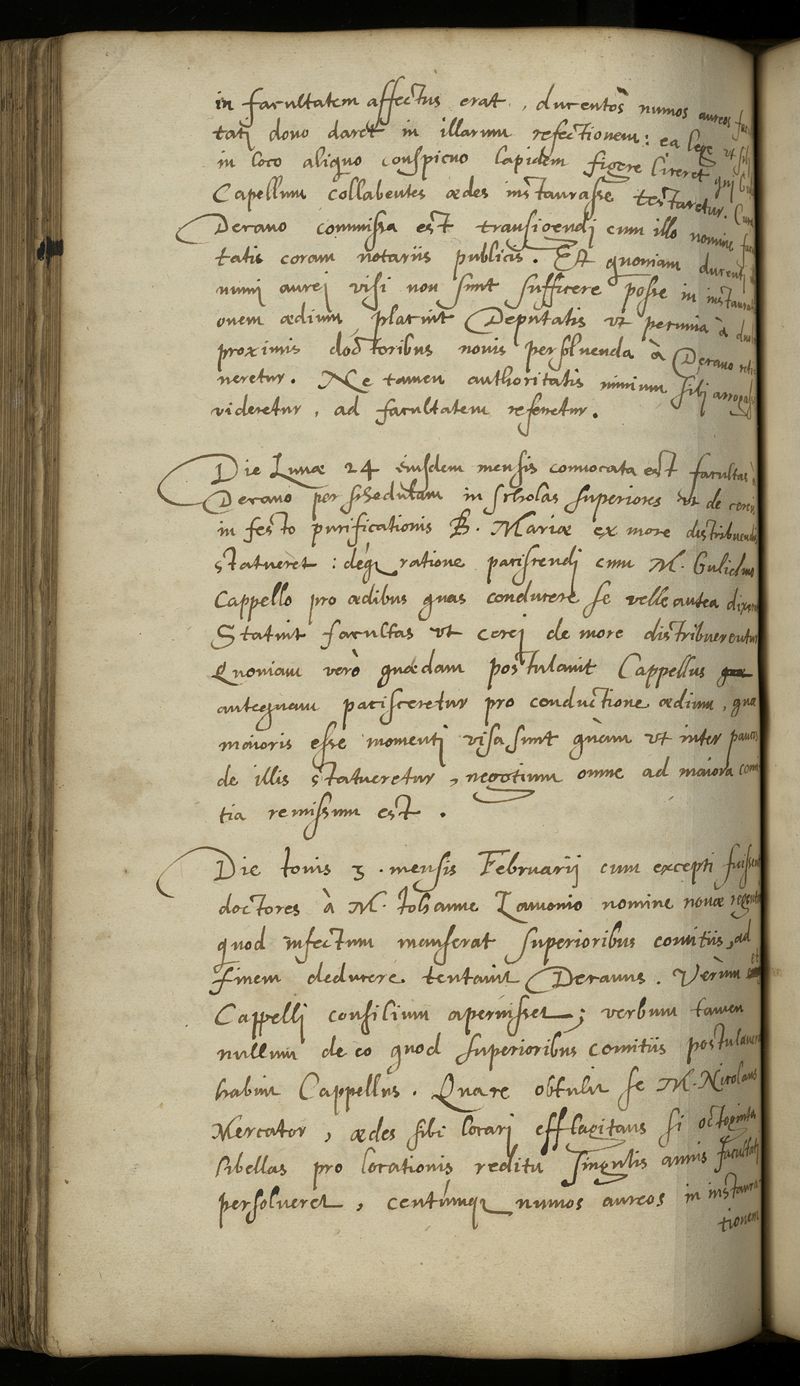 in facultatem affectus erat, ducentos numos aureos facul
tati dono daret in illarum refectionem: ea lege ut sibi
in loco aliquo conspicuo lapidem figere liceret qui Gul
Capellum collabentes ædes instaurasse testaretur. Cum
Decano commissa est transigendi cum illo nomine facul
tatis coram notariis publicis. Et quoniam ducenti
numi aurei visi non sunt sufficere posse in instaurati
onem ædium, placuit Deputatis ut pecunia à duobus
proximis doctoribus novis persoluenda à Decano reti
neretur. Ne tamen authoritatis nimium sibi arrogasse
videretur, ad facultatem refertur.
Die Lunæ 24 eiusdem mensis convocata est facultas à
Decano per schedulam in scholas superiores ut de cereis
in festo purificationis B. Mariæ ex more distribuendis
statueret: déq; ratione paciscendi cum M. Gulielmo
Cappello pro ædibus quas conducere se velle antea dixerat
Statuit facultas ut cerei de more distribuerentur
Quoniam verò quædam postulavit Cappellus
antequam pacisceretur pro conductione ædium, quæ
maioris esse momenti visa sunt quàm ut inter paucos
de illis statueretur, negotium omne ad maiora comi
tia remissum est.
Die Iovis 3. mensis Februarij cum excepti fuissent
doctores à M. Iohanne Lamonio nomine novæ regentiæ
quod infectum manserat superioribus comitiis, ad
finem deducere tentavit Decanus. Verùm et
Cappelli consilium aperuisset; verbum tamen
nullum de eo quod superioribus comitiis postulaverat
habuit Cappellus. Quare obtulit se M. Nicolaus
Mercator, ædes sibi locari efflagitans si octoginta
libellas pro locationis reditu singulis annis facultati
persolueret, centúmq; numos aureos in instaura
tionem